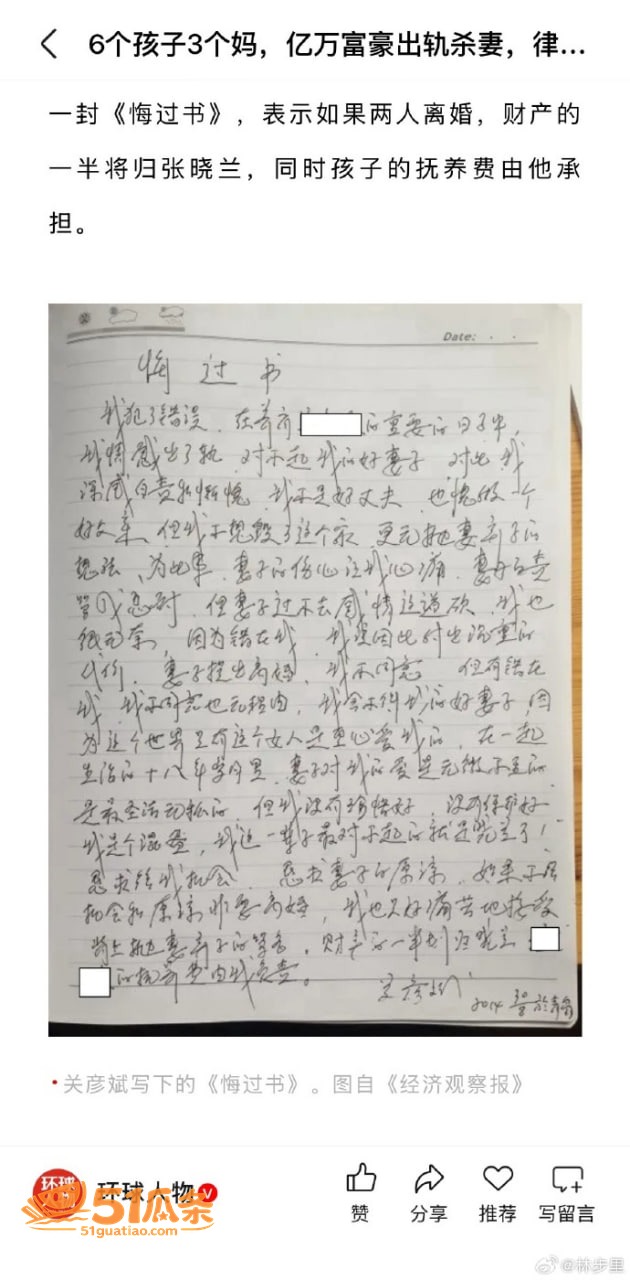 6个孩子3个妈，亿万富豪出轨杀妻，律...
一封《悔过书》，表示如果两人离婚，财产的
一半将归张晓兰，同时孩子的抚养费由他承
担。
Date:
悔过书
我犯了错误，在养育 的重要的日子里，
我情感出了轨，对不起我的好妻子，对此我
深感自责和惭愧，我不是好丈夫，也愧做一个
好父亲，但我不想毁了这个家，更无抛妻弃子的
想法，为此事，妻子的伤心让我心痛，妻
但妻子过不去感情这道砍，我也
很无奈，因为错在我，我要因此付出沉重的
代价，妻子提出离婚，我不同意，但有错在
我，我不同意也无理由，我舍不得我的好妻子，因
为这个世界里有这个女人是真心爱我的，在一起
生活的十八年岁月里，妻子对我的爱是无微不至的
是最圣洁无私的，但我没有珍惜好，没有保护好
我是个混蛋，我这一辈子最对不起的就是晓兰了！
恳求给我机会，恳求妻子的原谅，如果不给
机会和原谅非要离婚，我也只好痛苦地接受
背上抛妻弃子的骂名，财产的一半划归晓兰
的抚养费由我负责。
关彦斌
2014
关彦斌写下的《悔过书》。图自《经济观察报》
环球
环球人物
V
51瓜条
51guatiao.com
赞
分享
推荐
写留言
@林步里